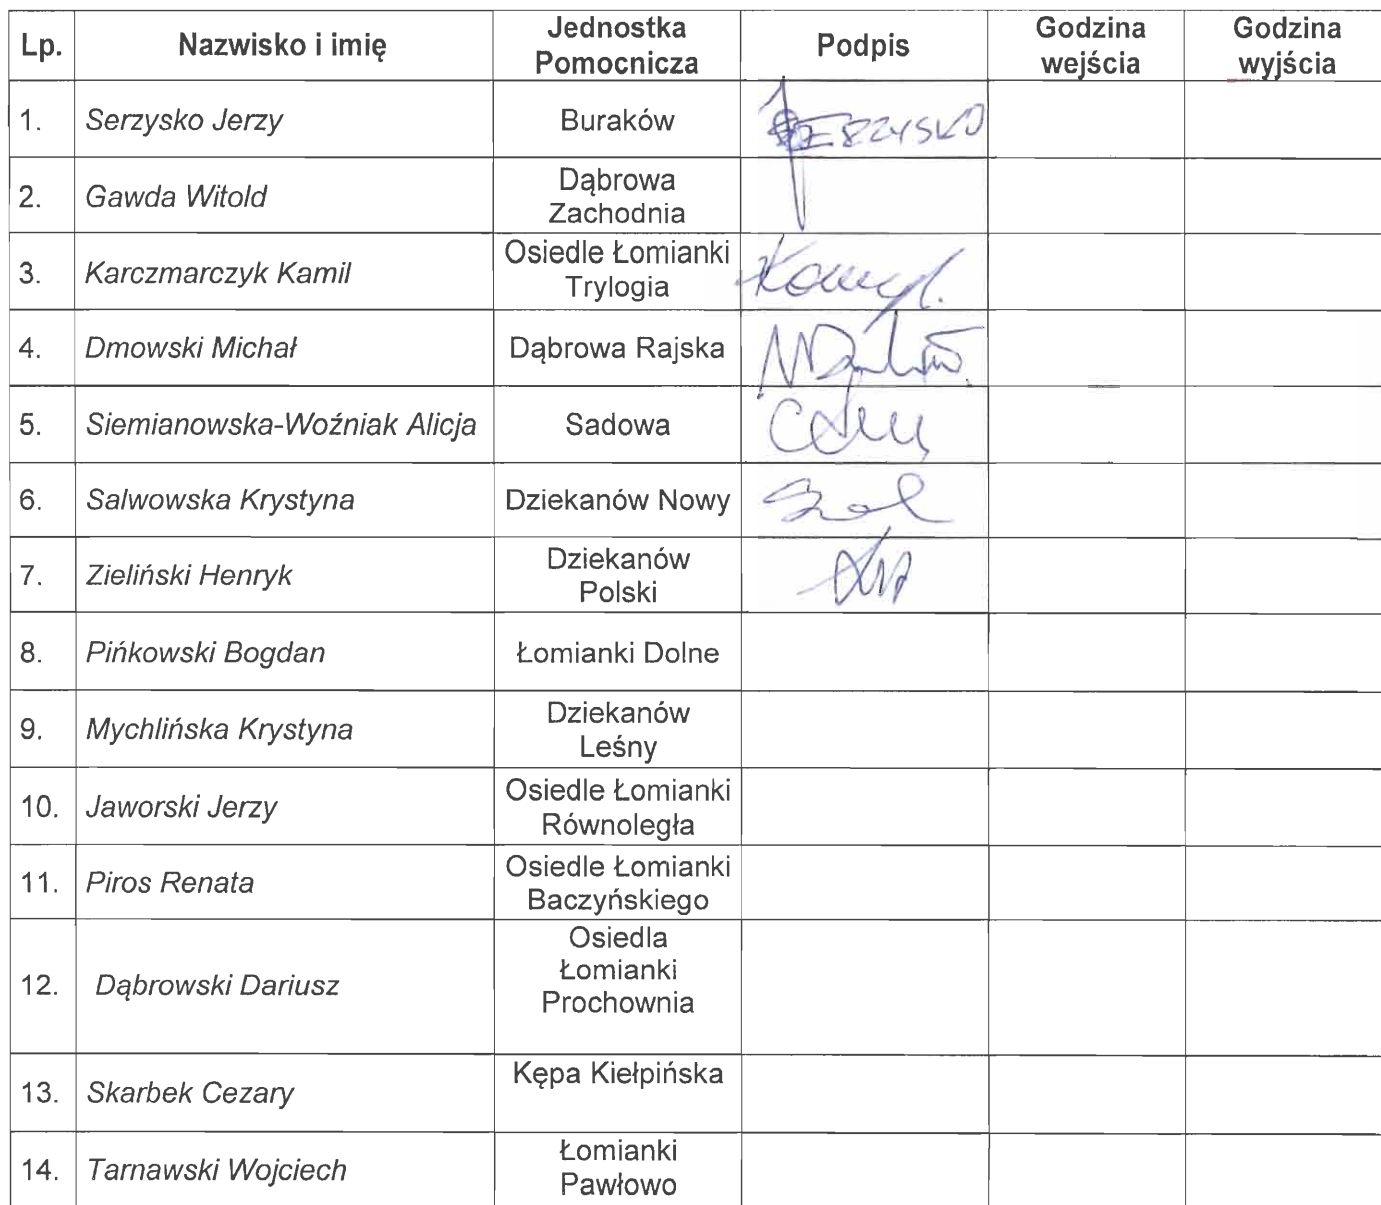 Lp. Nazwisko i imię Jednostka Pomocnicza Podpis Godzina wejścia Godzina wyjścia
1. Serzysko Jerzy Buraków SERZYSKO
2. Gawda Witold Dąbrowa Zachodnia
3. Karczmarczyk Kamil Osiedle Łomianki Trylogia
4. Dmowski Michał Dąbrowa Rajska
5. Siemianowska-Woźniak Alicja Sadowa
6. Salwowska Krystyna Dziekanów Nowy
7. Zieliński Henryk Dziekanów Polski
8. Pińkowski Bogdan Łomianki Dolne
9. Mychlińska Krystyna Dziekanów Leśny
10. Jaworski Jerzy Osiedle Łomianki Równoległa
11. Piros Renata Osiedle Łomianki Baczyńskiego
12. Dąbrowski Dariusz Osiedla Łomianki Prochownia
13. Skarbek Cezary Kępa Kiełpińska
14. Tarnawski Wojciech Łomianki Pawłowo